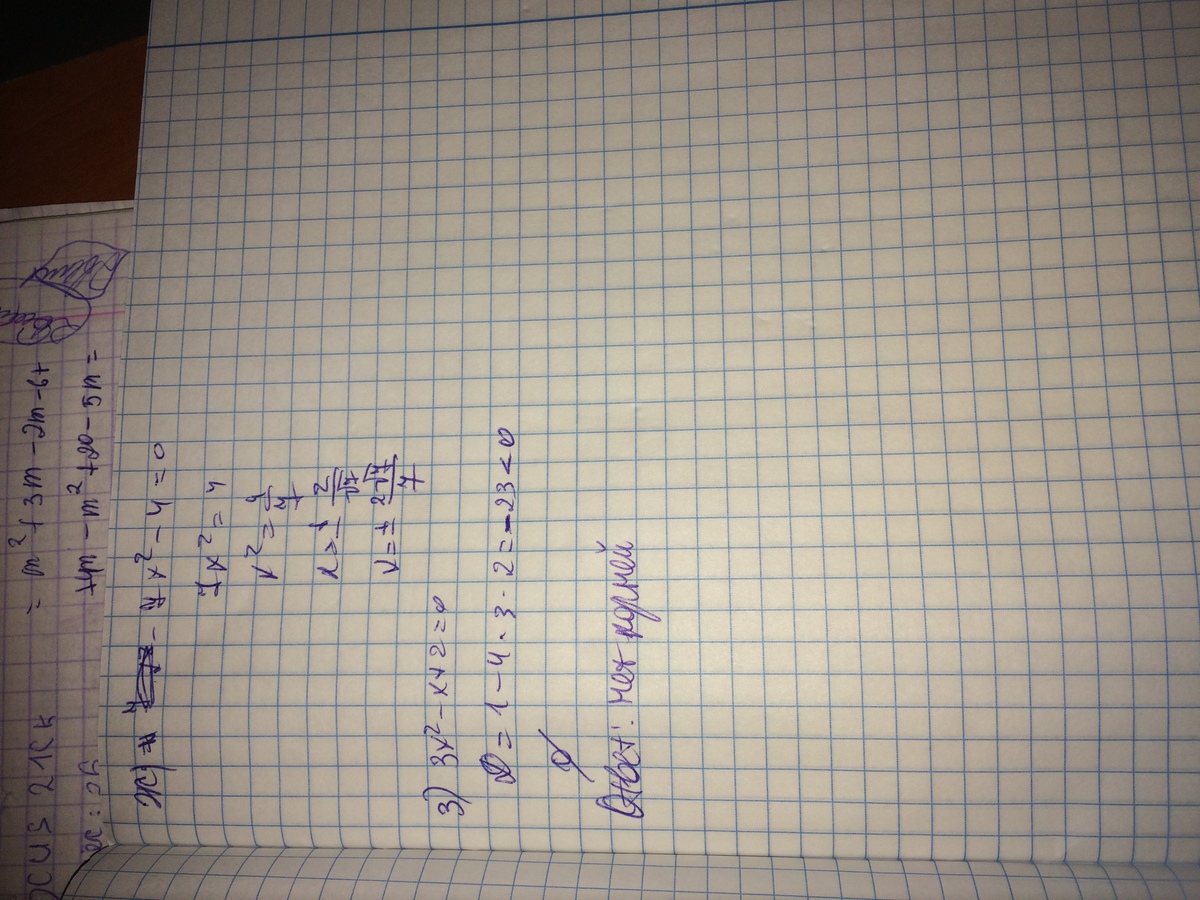 = m² + 3m - 2m - 6 +
+ 4m - m² + 20 - 5m =
ж) 7x² - 4 = 0
7x² = 4
x² = 4/7
x = ± 2/√7
x = ± 2√7/7
з) 3x² - x + 2 = 0
D = 1 - 4 · 3 · 2 = -23 < 0
∅
Ответ: нет корней